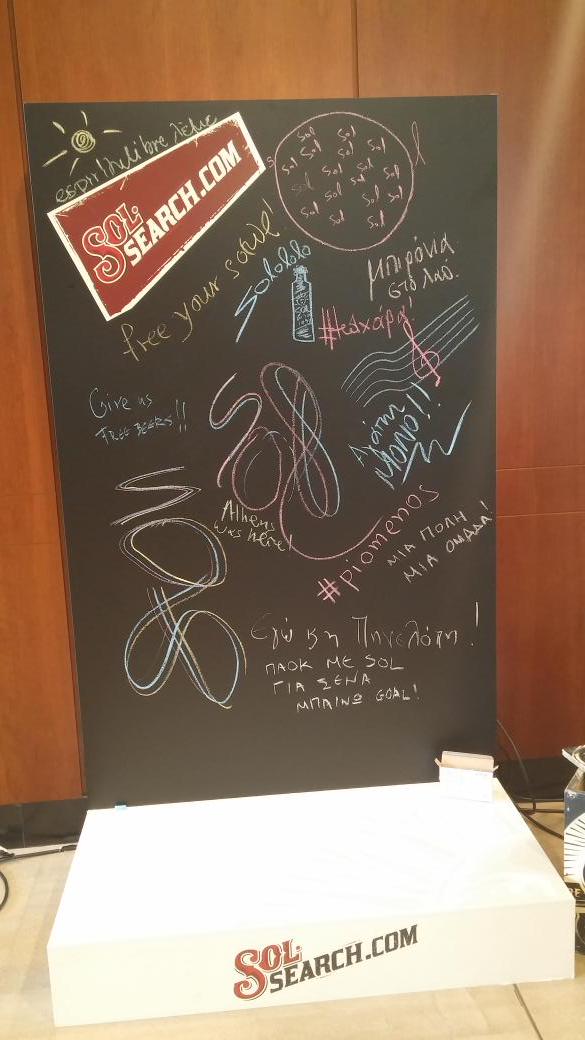 espritlibre λέμε
SOL
SEARCH.COM
Sol Sol Sol
Sol Sol Sol Sol
Sol Sol Sol
Sol Sol Sol
Sol Sol Sol
free your soul!
Sololololo
SOL
μπιρόνια
στο λαό.
Give us
FREE BEERS!!
Αγάπη
ΜΟΝΟ!!
Athens
was here!
#piomenos
ΜΙΑ ΠΟΛΗ
ΜΙΑ ΟΜΑΔΑ!
Sol
Εγώ κι η Πηνελόπη!
ΠΑΟΚ ΜΕ SOL
ΓΙΑ ΣΕΝΑ
ΜΠΑΙΝΩ GOAL!
SOL
SEARCH.COM